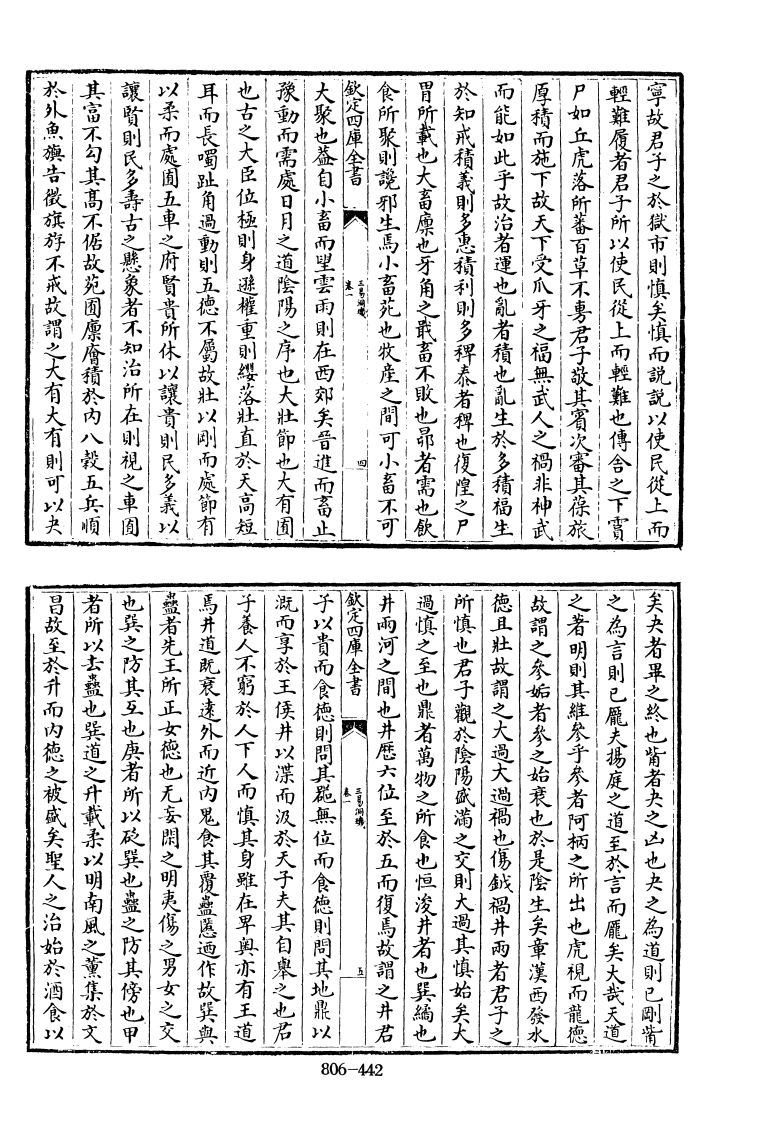 寧故君子之於獄市則慎矣慎而說說以使民從上而
輕難履者君子所以使民從上而輕難也傳舍之下賓
尸如丘虎落所蕃百草不專君子敬其賓次審其葆旅
厚積而施下故天下受爪牙之福無武人之禍非神武
而能如此乎故治者運也亂者積也亂生於多積福生
於知戒積義則多惠積利則多稗泰者稗也復隍之尸
胃所載也大畜廪也牙角之戢畜不敗也昴者需也飲
食所聚則讒邪生焉小畜苑也牧産之間可小畜不可
欽定四庫全書
三易洞璣
卷一
四
大聚也葢自小畜而望雲雨則在西郊矣晉進而畜止
豫動而需處日月之道陰陽之序也大壯節也大有囿
也古之大臣位極則身遯權重則纓落壯直於天高短
耳而長噣趾角過動則五德不屬故壯以剛而處節有
以柔而處囿五車之府賢貴所休以讓貴則民多義以
讓賢則民多壽古之懸象者不知治所在則視之車囿
其富不勾其髙不倨故苑囿廪廥積於内八穀五兵順
於外魚旟告徵旗斿不戒故謂之大有大有則可以夬
矣夬者畢之終也觜者夬之凶也夬之為道則已剛觜
之為言則已厖夫揚庭之道至於言而厖矣大哉天道
之著明則其維參乎參者阿柄之所出也虎視而龍德
故謂之參姤者參之始衰也於是陰生矣章漢西發水
德且壯故謂之大過大過禍也傷鉞禍井兩者君子之
所慎也君子觀於陰陽盛滿之交則大過其慎始矣大
過慎之至也鼎者萬物之所食也恒浚井者也巽繘也
井兩河之間也井歴六位至於五而復焉故謂之井君
欽定四庫全書
三易洞璣
卷一
五
子以貴而食德則問其鬷無位而食德則問其地鼎以
溉而享於王侯井以渫而汲於天子夫其自舉之也君
子養人不窮於人下人而慎其身雖在畀輿亦有王道
焉井道既衰遠外而近内鬼食其覆蠱慝廼作故巽輿
蠱者先王所正女德也无妄閑之明夷傷之男女之交
也巽之防其互也庚者所以砭巽也蠱之防其傍也甲
者所以去蠱也巽道之升載柔以明南風之薰集於文
昌故至於升而内徳之被盛矣聖人之治始於酒食以
806-442